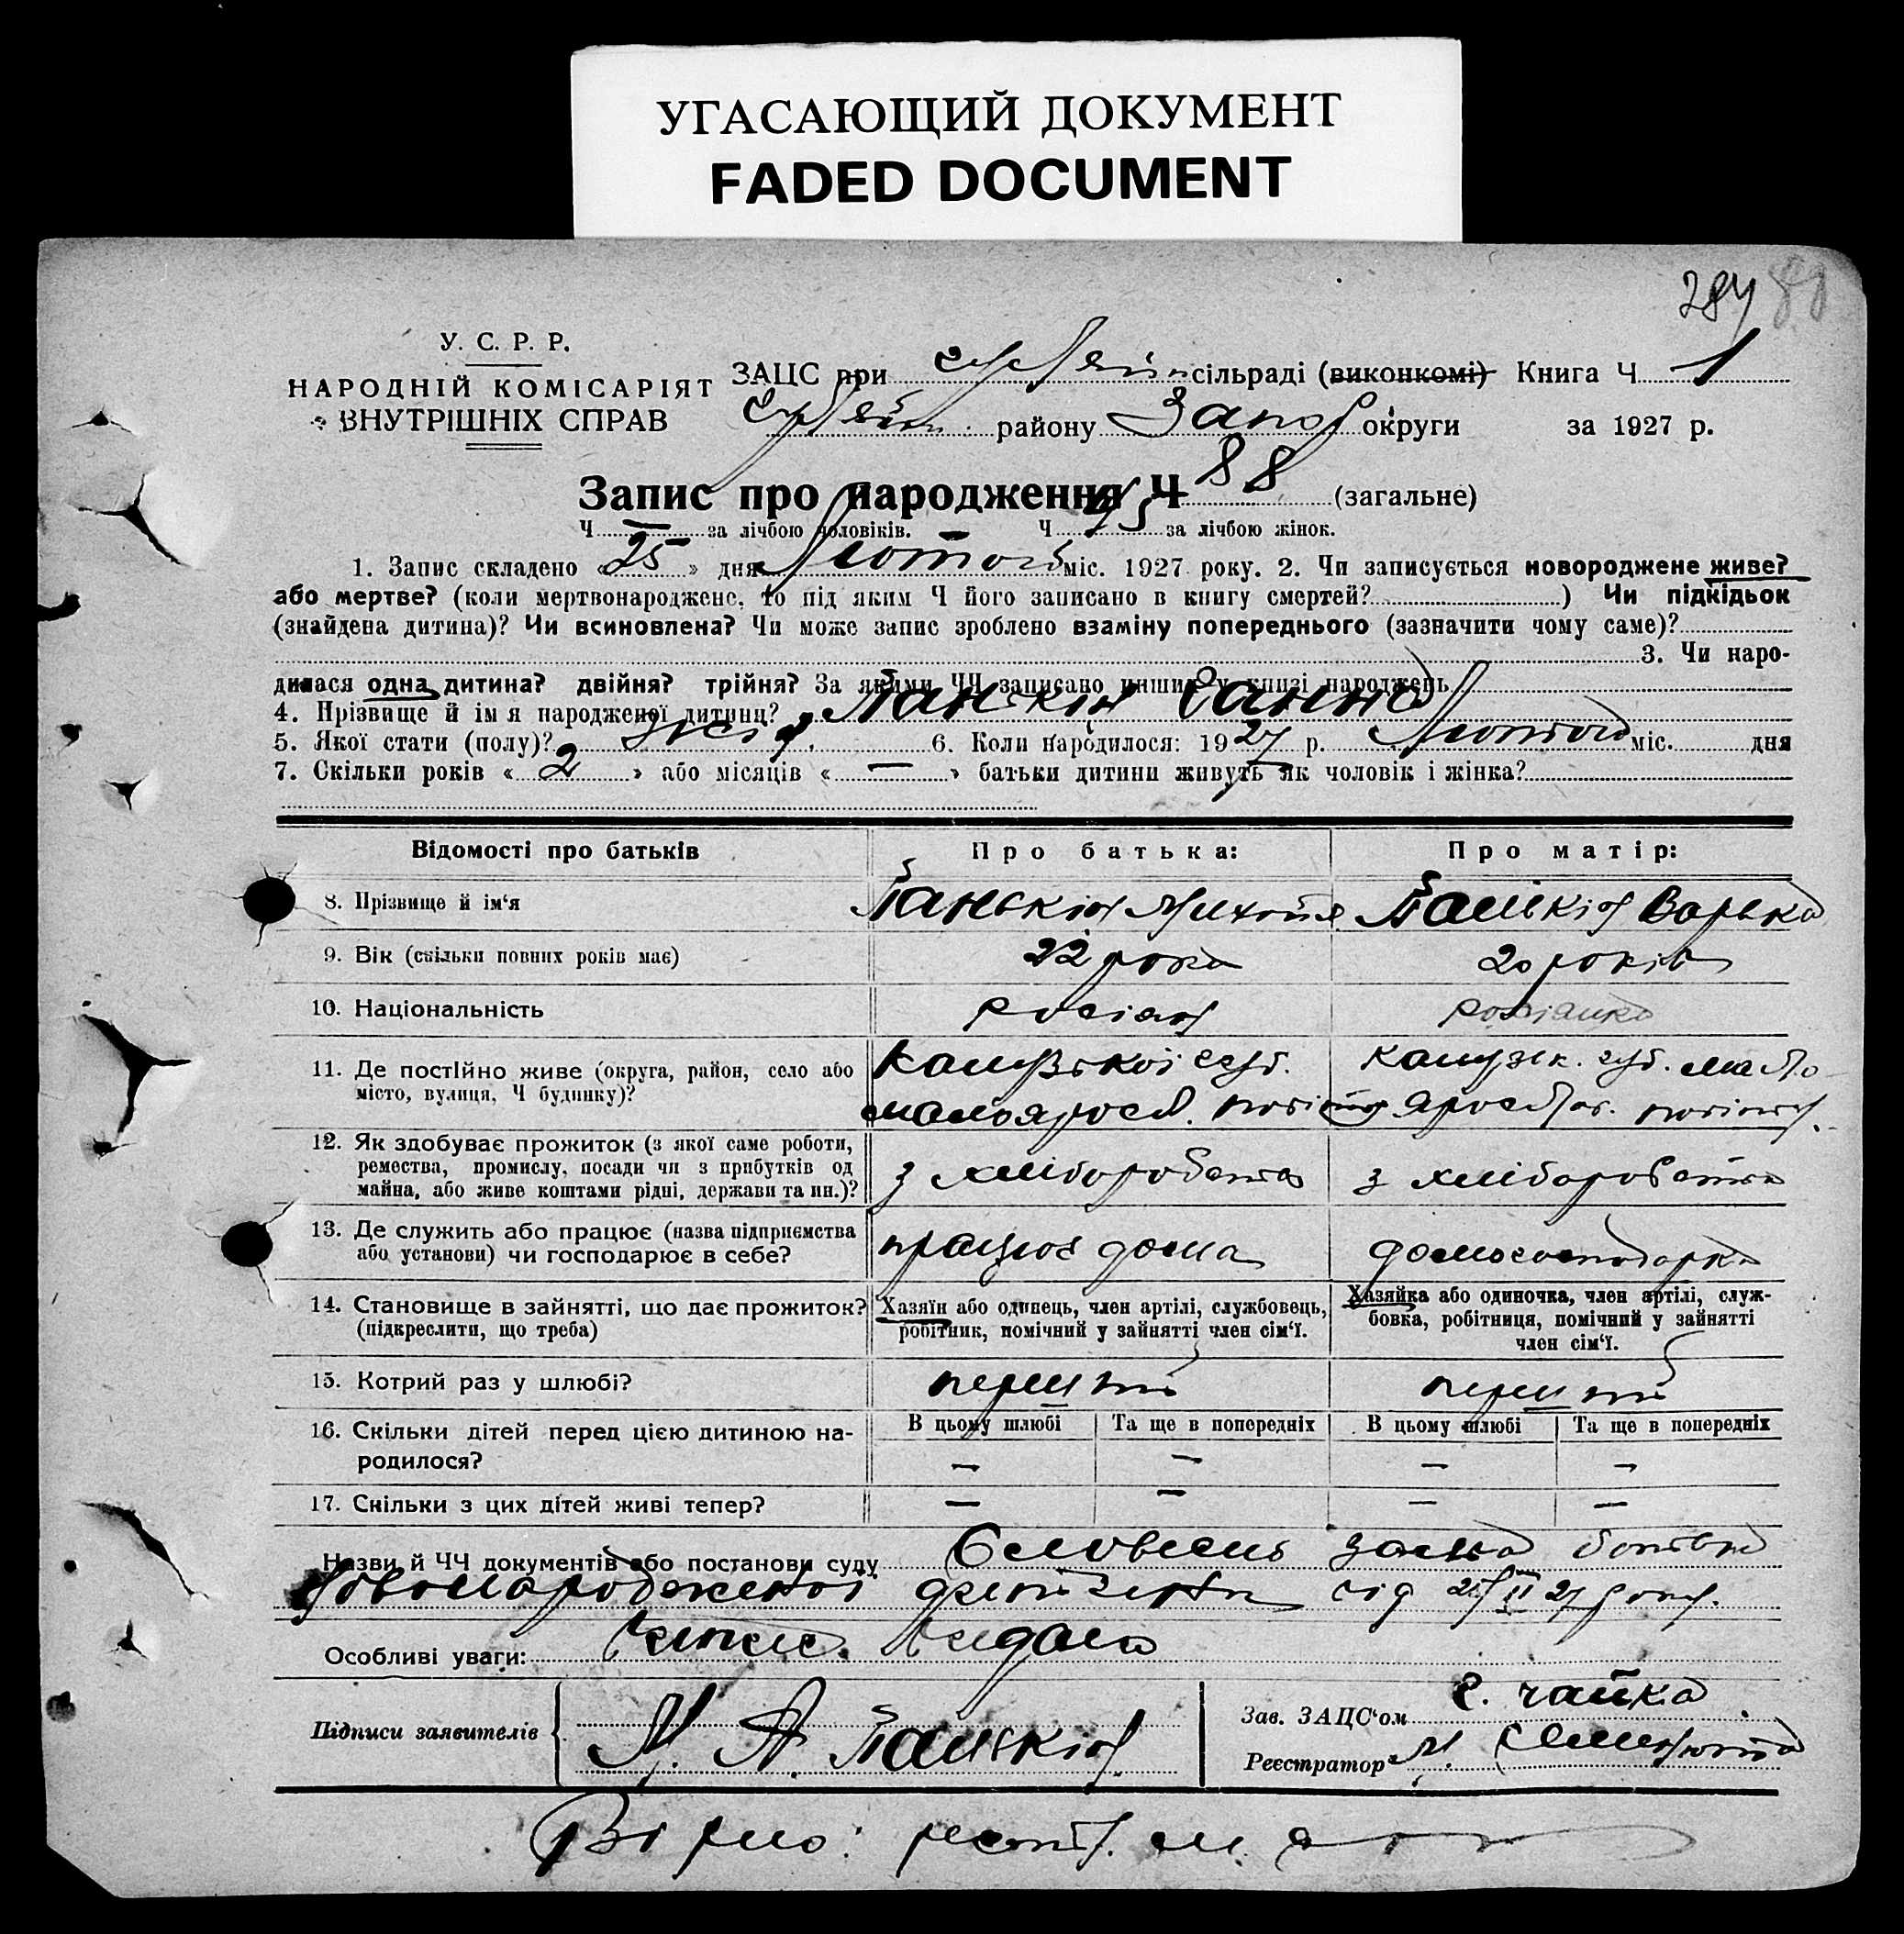 УГАСАЮЩИЙ ДОКУМЕНТ
FADED DOCUMENT
284 88
У. С. Р. Р.
НАРОДНІЙ КОМІСАРІЯТ
ВНУТРІШНІХ СПРАВ
ЗАЦС при сільраді (виконкомі) Книга Ч. 1
району Запор округи за 1927 р.
Запис про народження Ч 88 (загальне)
Ч. — за лічбою чоловіків. Ч. 45 за лічбою жінок.
1. Запис складено «25» дня Лютого міс. 1927 року. 2. Чи записується новороджене живе?
або мертве? (коли мертвонароджене, то під яким Ч його записано в книгу смертей?) Чи підкідьок
(знайдена дитина)? Чи всиновлена? Чи може запис зроблено взаміну попереднього (зазначити чому саме)?
3. Чи наро-
дилася одна дитина? двійня? трійня? За якими ЧЧ записано инших у книзі народжень
4. Прізвище й ім я народженої дитини? Панькін Ганна
5. Якої стати (полу)? жін. 6. Коли народилося: 1927 р. Лютого міс. дня
7. Скільки років «2» або місяців «—» батьки дитини живуть як чоловік і жінка?
Відомості про батьків Про батька: Про матір:
8. Прізвище й ім'я Панькін Михайло Панькін Варька
9. Вік (скільки повних років має) 22 роки 20 років
10. Національність росіян росіянка
11. Де постійно живе (округа, район, село або Калузької губ. Калузьк. губ. мало
місто, вулиця, Ч будинку)? малояросл. повіту ярослав. повіту.
12. Як здобуває прожиток (з якої саме роботи,
ремества, промислу, посади чи з прибутків од з хліборобства з хліборобства
майна, або живе коштами рідні, держави та ин.)?
13. Де служить або працює (назва підприємства працює дома домогосподарка
або установи) чи господарює в себе?
14. Становище в зайнятті, що дає прожиток? Хазяїн або одинець, член артілі, службовець, Хазяйка або одиночка, член артілі, служ-
(підкреслити, що треба) робітник, помічний у зайнятті член сім'ї. бовка, робітниця, помічний у зайнятті
член сім'ї.
15. Котрий раз у шлюбі? перший перший
16. Скільки дітей перед цією дитиною на- В цьому шлюбі Та ще в попередніх В цьому шлюбі Та ще в попередніх
родилося? — — — —
17. Скільки з цих дітей живі тепер? — — — —
Назви й ЧЧ документів або постанови суду Словесна заява батька
новонародженої дитини від 25/II 27 року.
Особливі уваги:
Підписи заявителів М. А. Панькін
Зав. ЗАЦС'ом Є. Чайка
Реєстратор М.
Вірно: реєстр. М.